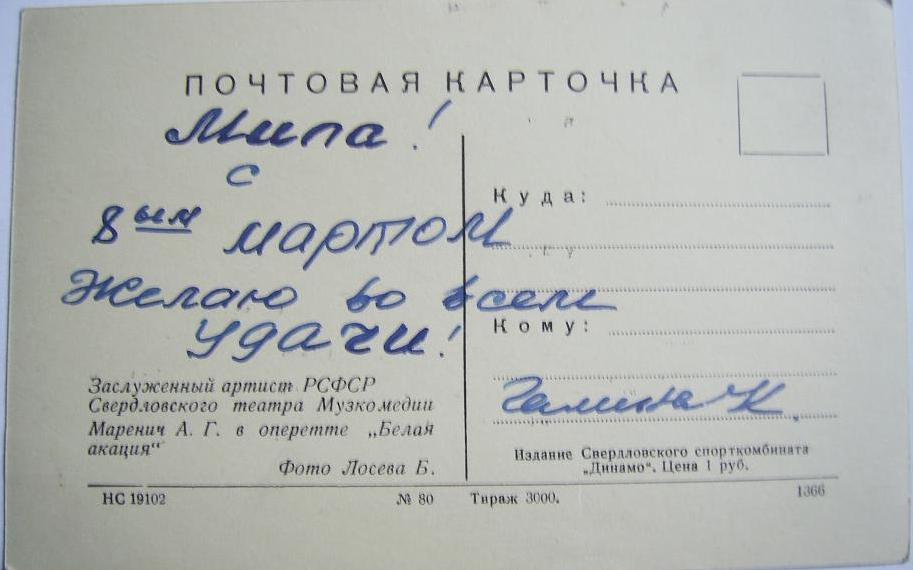 ПОЧТОВАЯ КАРТОЧКА
Мила!
с
8ым мартом
Желаю во всем
удачи!
Заслуженный артист РСФСР
Свердловского театра Музкомедии
Маренич А. Г. в оперетте „Белая
акация“
Фото Лосева Б.
Куда:
Кому:
Галина К
Издание Свердловского спорткомбината
„Динамо“. Цена 1 руб.
НС 19102
№ 80
Тираж 3000.
1366